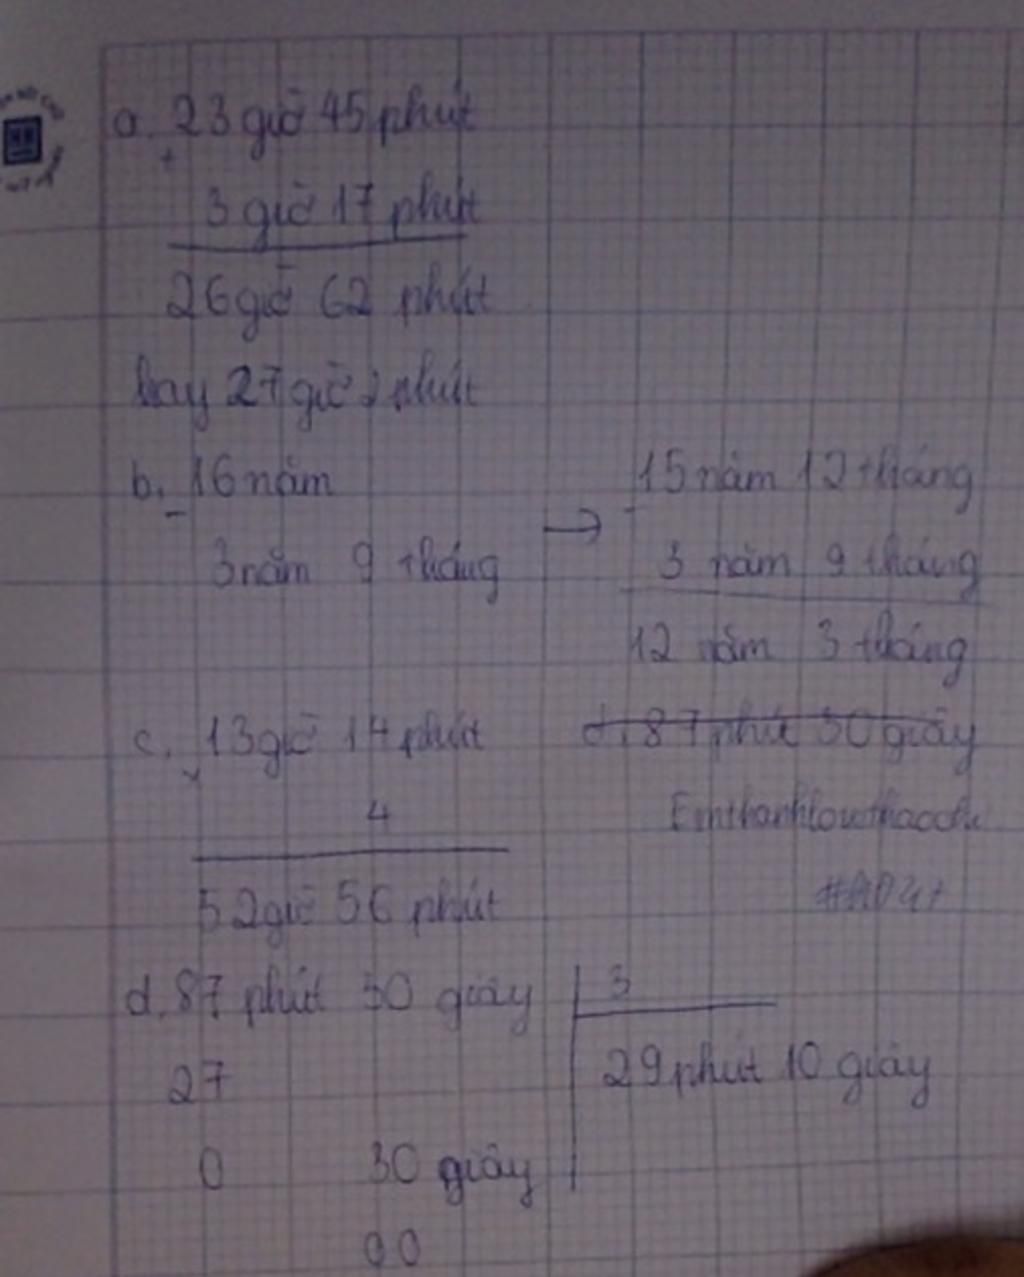 a. 23 giờ 45 phút
+
3 giờ 17 phút
26 giờ 62 phút
hay 27 giờ 2 phút
b. 16 năm
-
3 năm 9 tháng
→
15 năm 12 tháng
-
3 năm 9 tháng
12 năm 3 tháng
c. 13 giờ 14 phút
x
4
52 giờ 56 phút
d. 87 phút 30 giây
d. 87 phút 30 giây | 3
27
29 phút 10 giây
0 30 giây
00